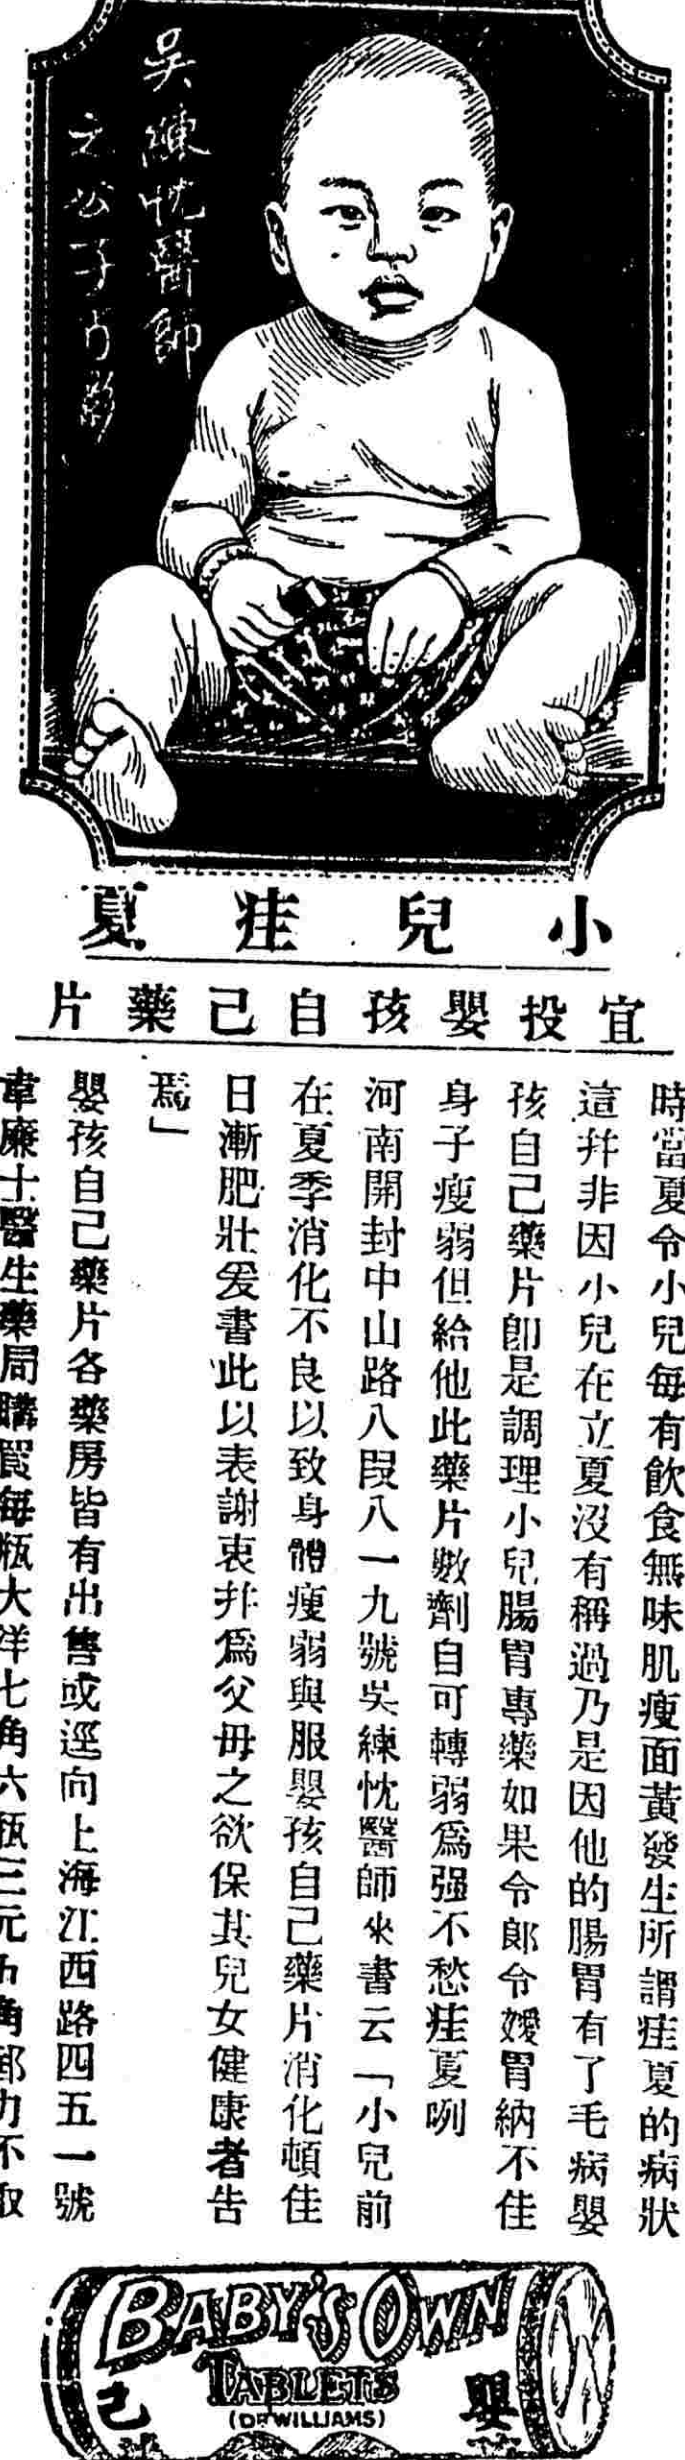 吳練忱醫師
之公子肖影
小兒疰夏
宜投嬰孩自己藥片
時當夏令小兒每有飲食無味肌瘦面黃發生所謂疰夏的病狀
這幷非因小兒在立夏沒有稱過乃是因他的腸胃有了毛病嬰
孩自己藥片卽是調理小兒腸胃專藥如果令郞令嬡胃納不佳
身子瘦弱但給他此藥片數劑自可轉弱爲强不愁疰夏咧
河南開封中山路八段八一九號吳練忱醫師來書云「小兒前
在夏季消化不良以致身體瘦弱與服嬰孩自己藥片消化頓佳
日漸肥壯爰書此以表謝衷幷爲父母之欲保其兒女健康者吿
焉」
嬰孩自己藥片各藥房皆有出售或逕向上海江西路四五一號
韋廉士醫生藥局購買每瓶大洋七角六瓶三元五角郵力不取
BABY'S OWN
TABLETS
(DR WILLIAMS)
嬰
己